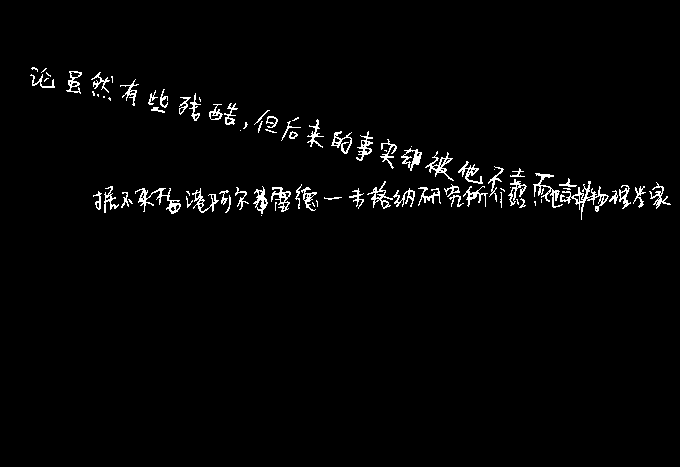 论虽然有些残酷,但后来的事实却被他不幸而
据不来梅港阿尔弗雷德一韦格纳研究所介绍地球物理学家